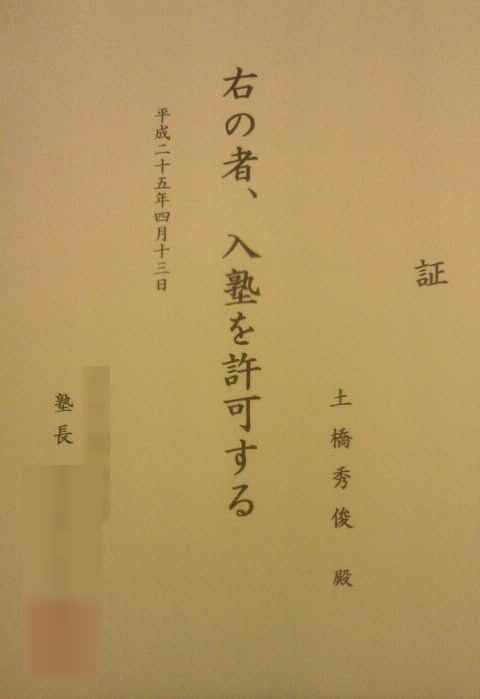 証
土橋秀俊 殿
右の者、入塾を許可する
平成二十五年四月十三日
塾長